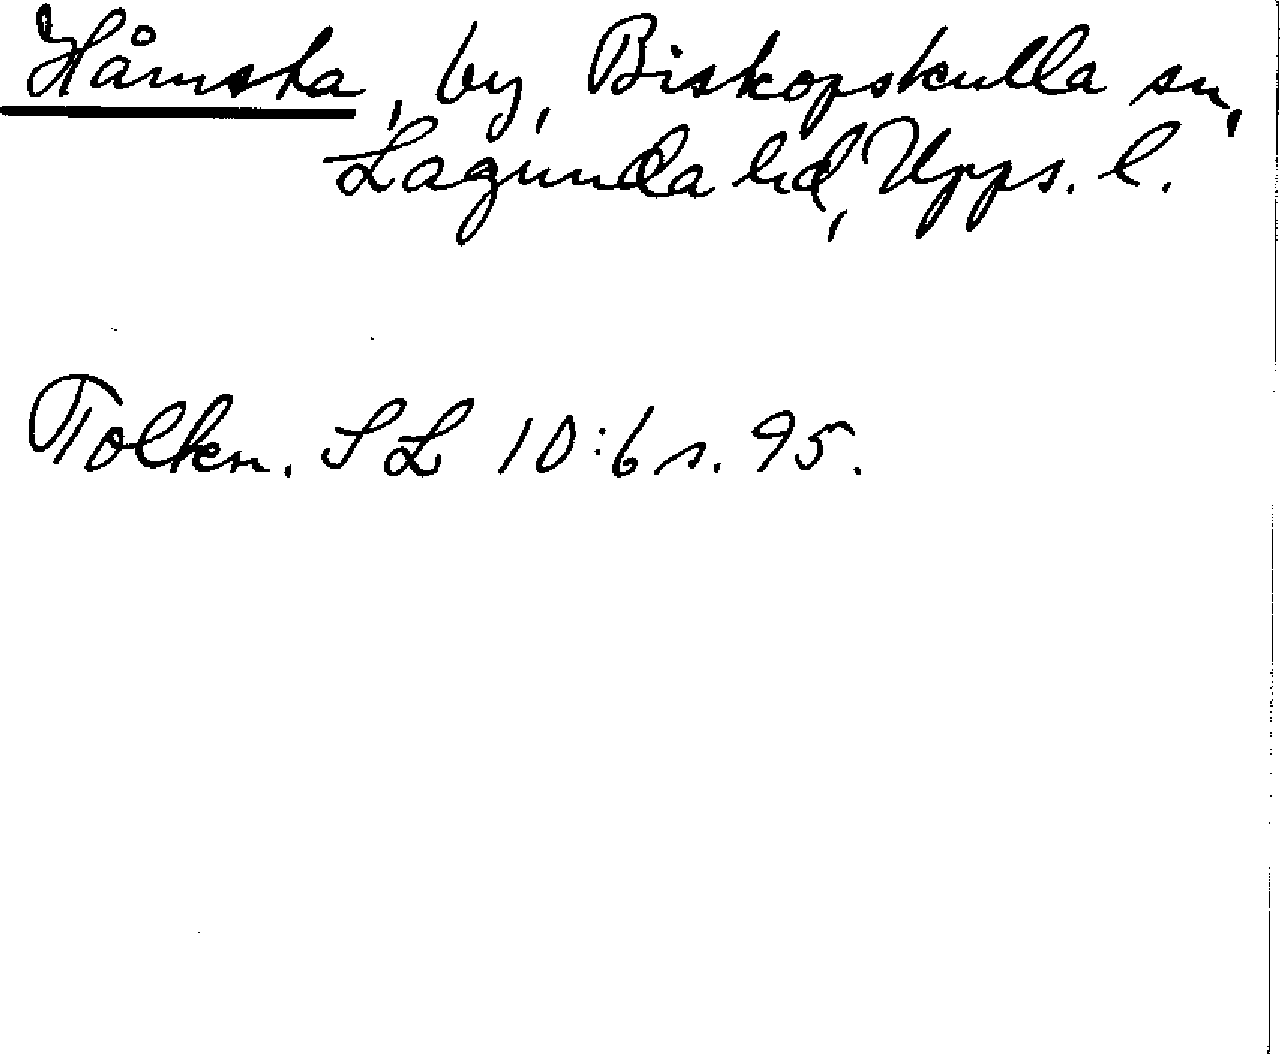 Håmsta, by, Biskopskulla sn,
Lagunda hd, Upps. l.
Tolkn. SL 10:6 s. 95.